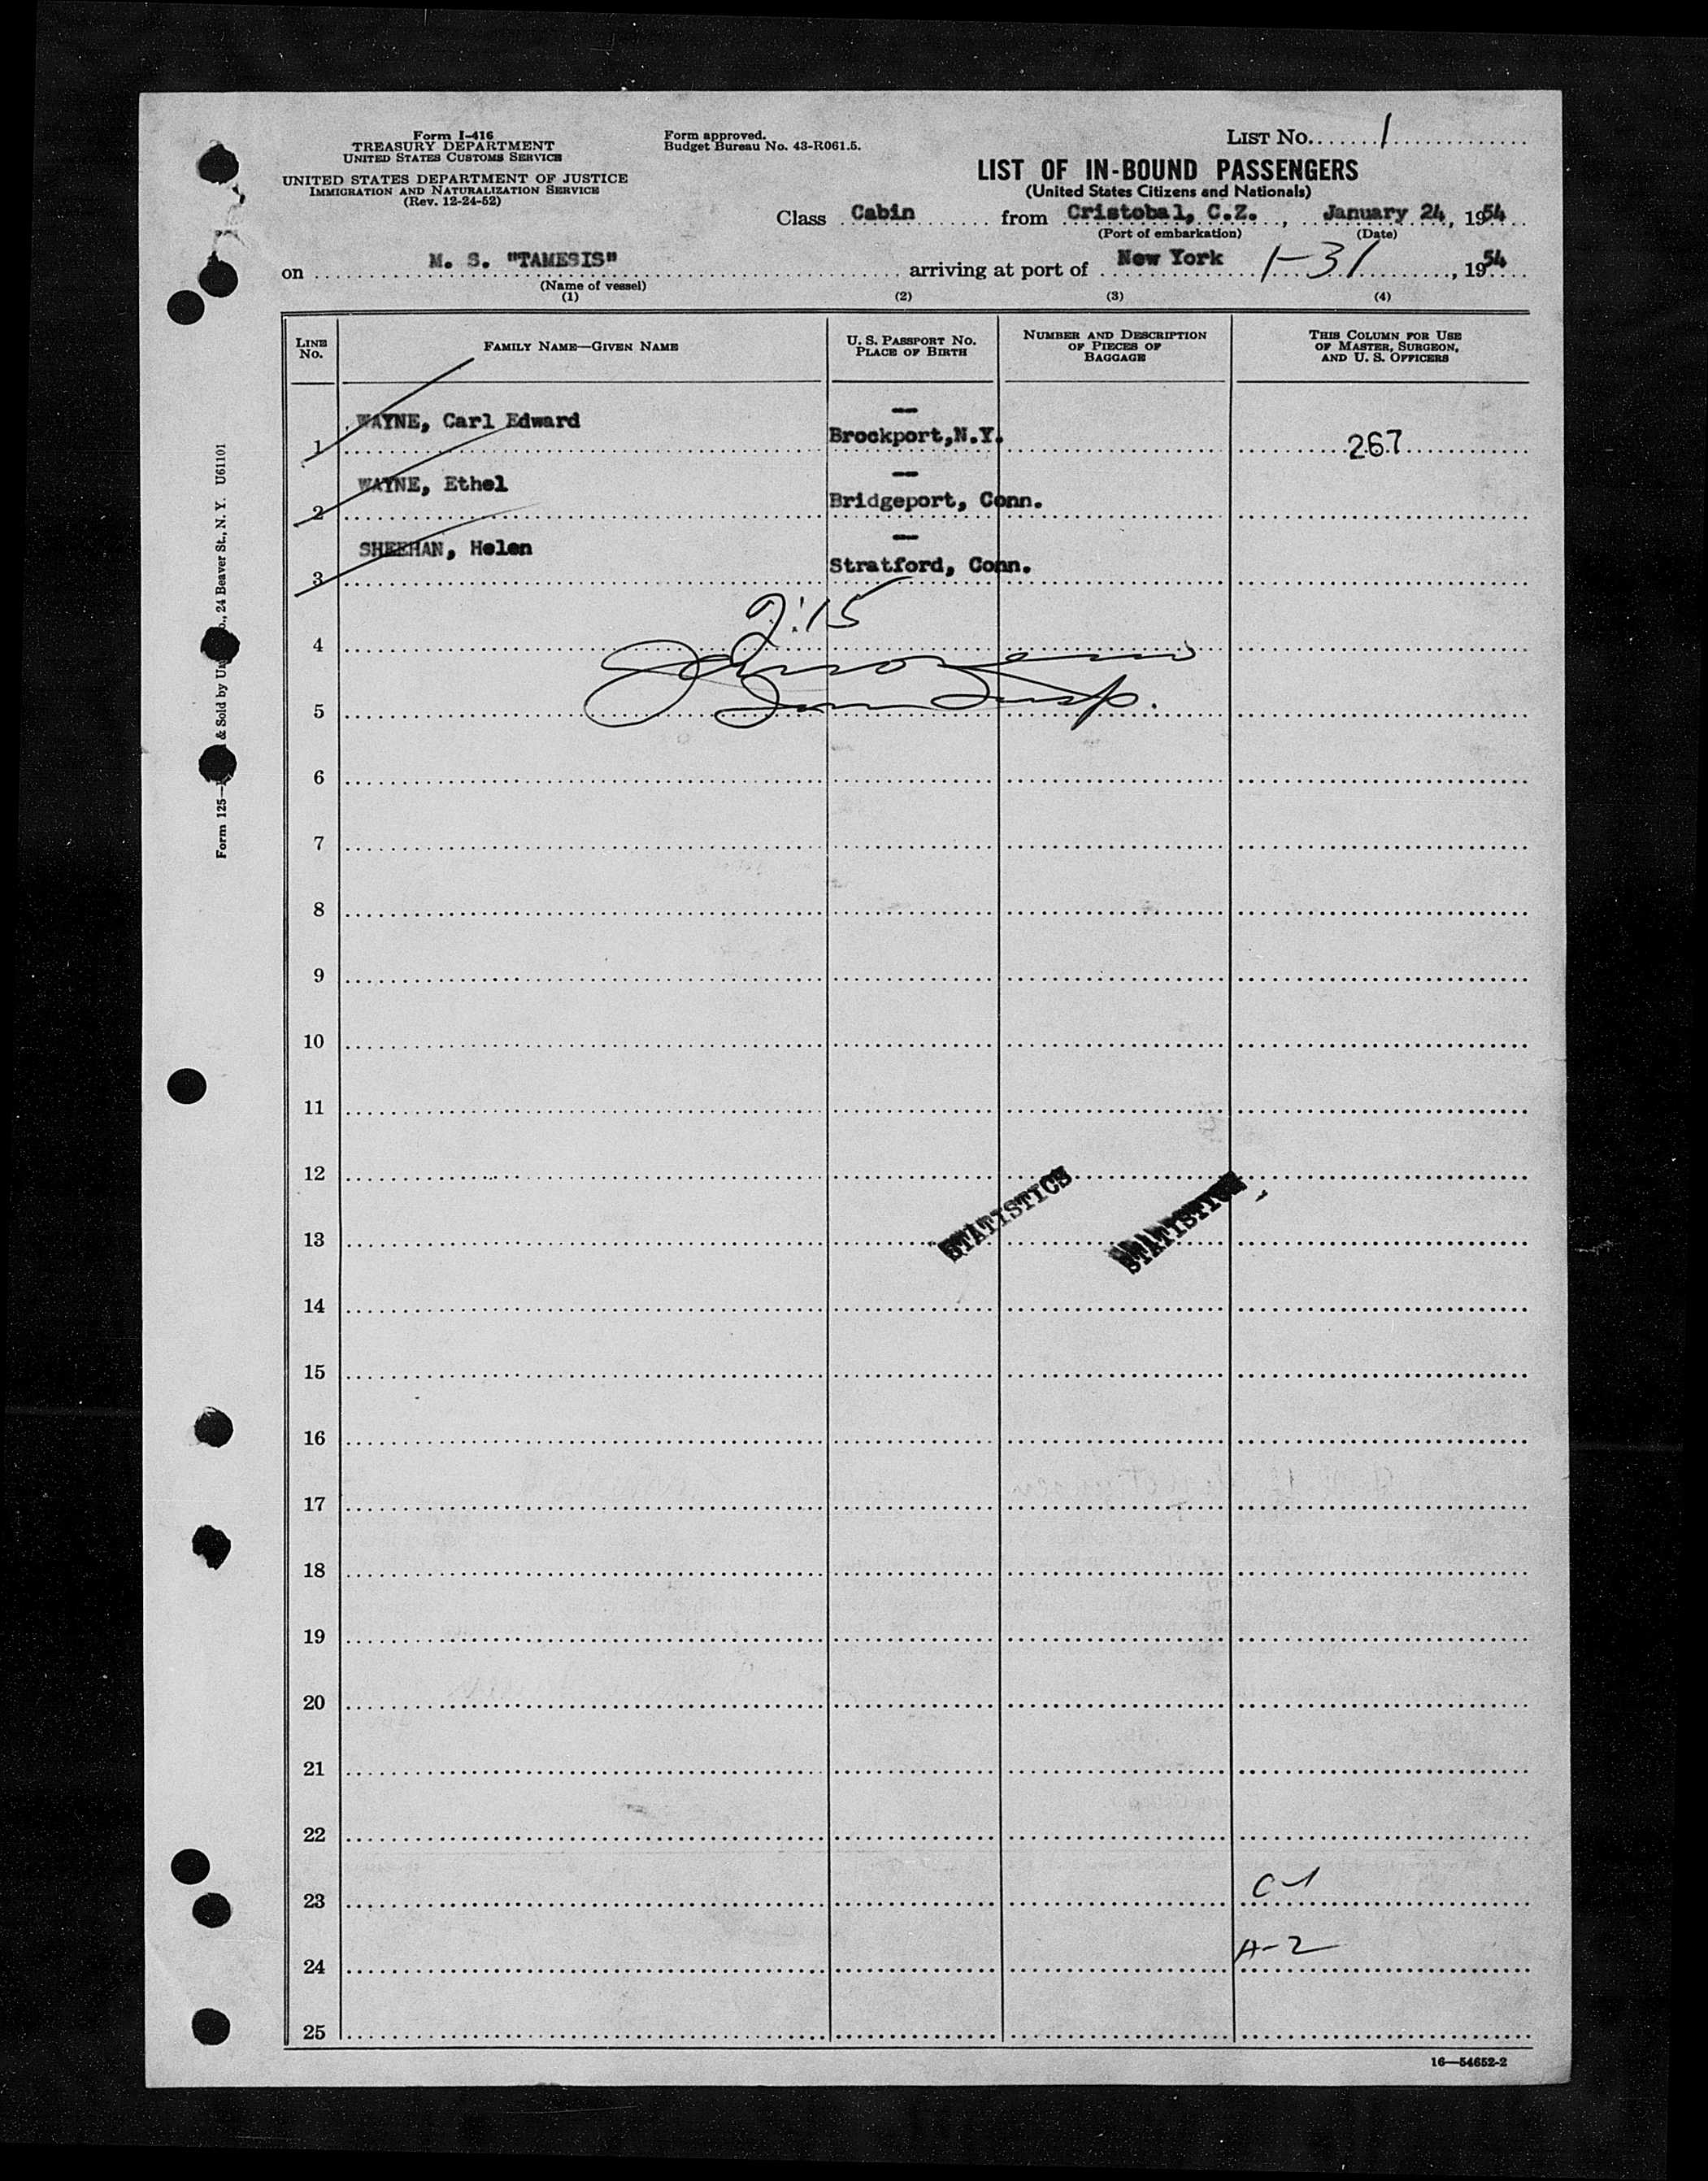 Form I-416
TREASURY DEPARTMENT
UNITED STATES CUSTOMS SERVICE
UNITED STATES DEPARTMENT OF JUSTICE
IMMIGRATION AND NATURALIZATION SERVICE
(Rev. 12-24-52)
Form approved.
Budget Bureau No. 43-R061.5.
LIST No. 1
LIST OF IN-BOUND PASSENGERS
(United States Citizens and Nationals)
Class Cabin from Cristobal, C.Z., January 24, 1954
(Port of embarkation) (Date)
on M. S. "TAMESIS" arriving at port of New York 1-31, 1954
(Name of vessel)
(1) (2) (3) (4)
LINE No. FAMILY NAME—GIVEN NAME U. S. PASSPORT No. PLACE OF BIRTH NUMBER AND DESCRIPTION OF PIECES OF BAGGAGE THIS COLUMN FOR USE OF MASTER, SURGEON, AND U. S. OFFICERS
1 WAYNE, Carl Edward — Brockport,N.Y. 267
2 WAYNE, Ethel — Bridgeport, Conn.
3 SHEEHAN, Helen — Stratford, Conn.
4
5 Insp.
6
7
8
9
10
11
12
STATISTICS STATISTICS
13
14
15
16
17
18
19
20
21
22
23 C-1
24 A-2
25
16—54652-2
Form 125— & Sold by 24 Beaver St., N. Y. U61101